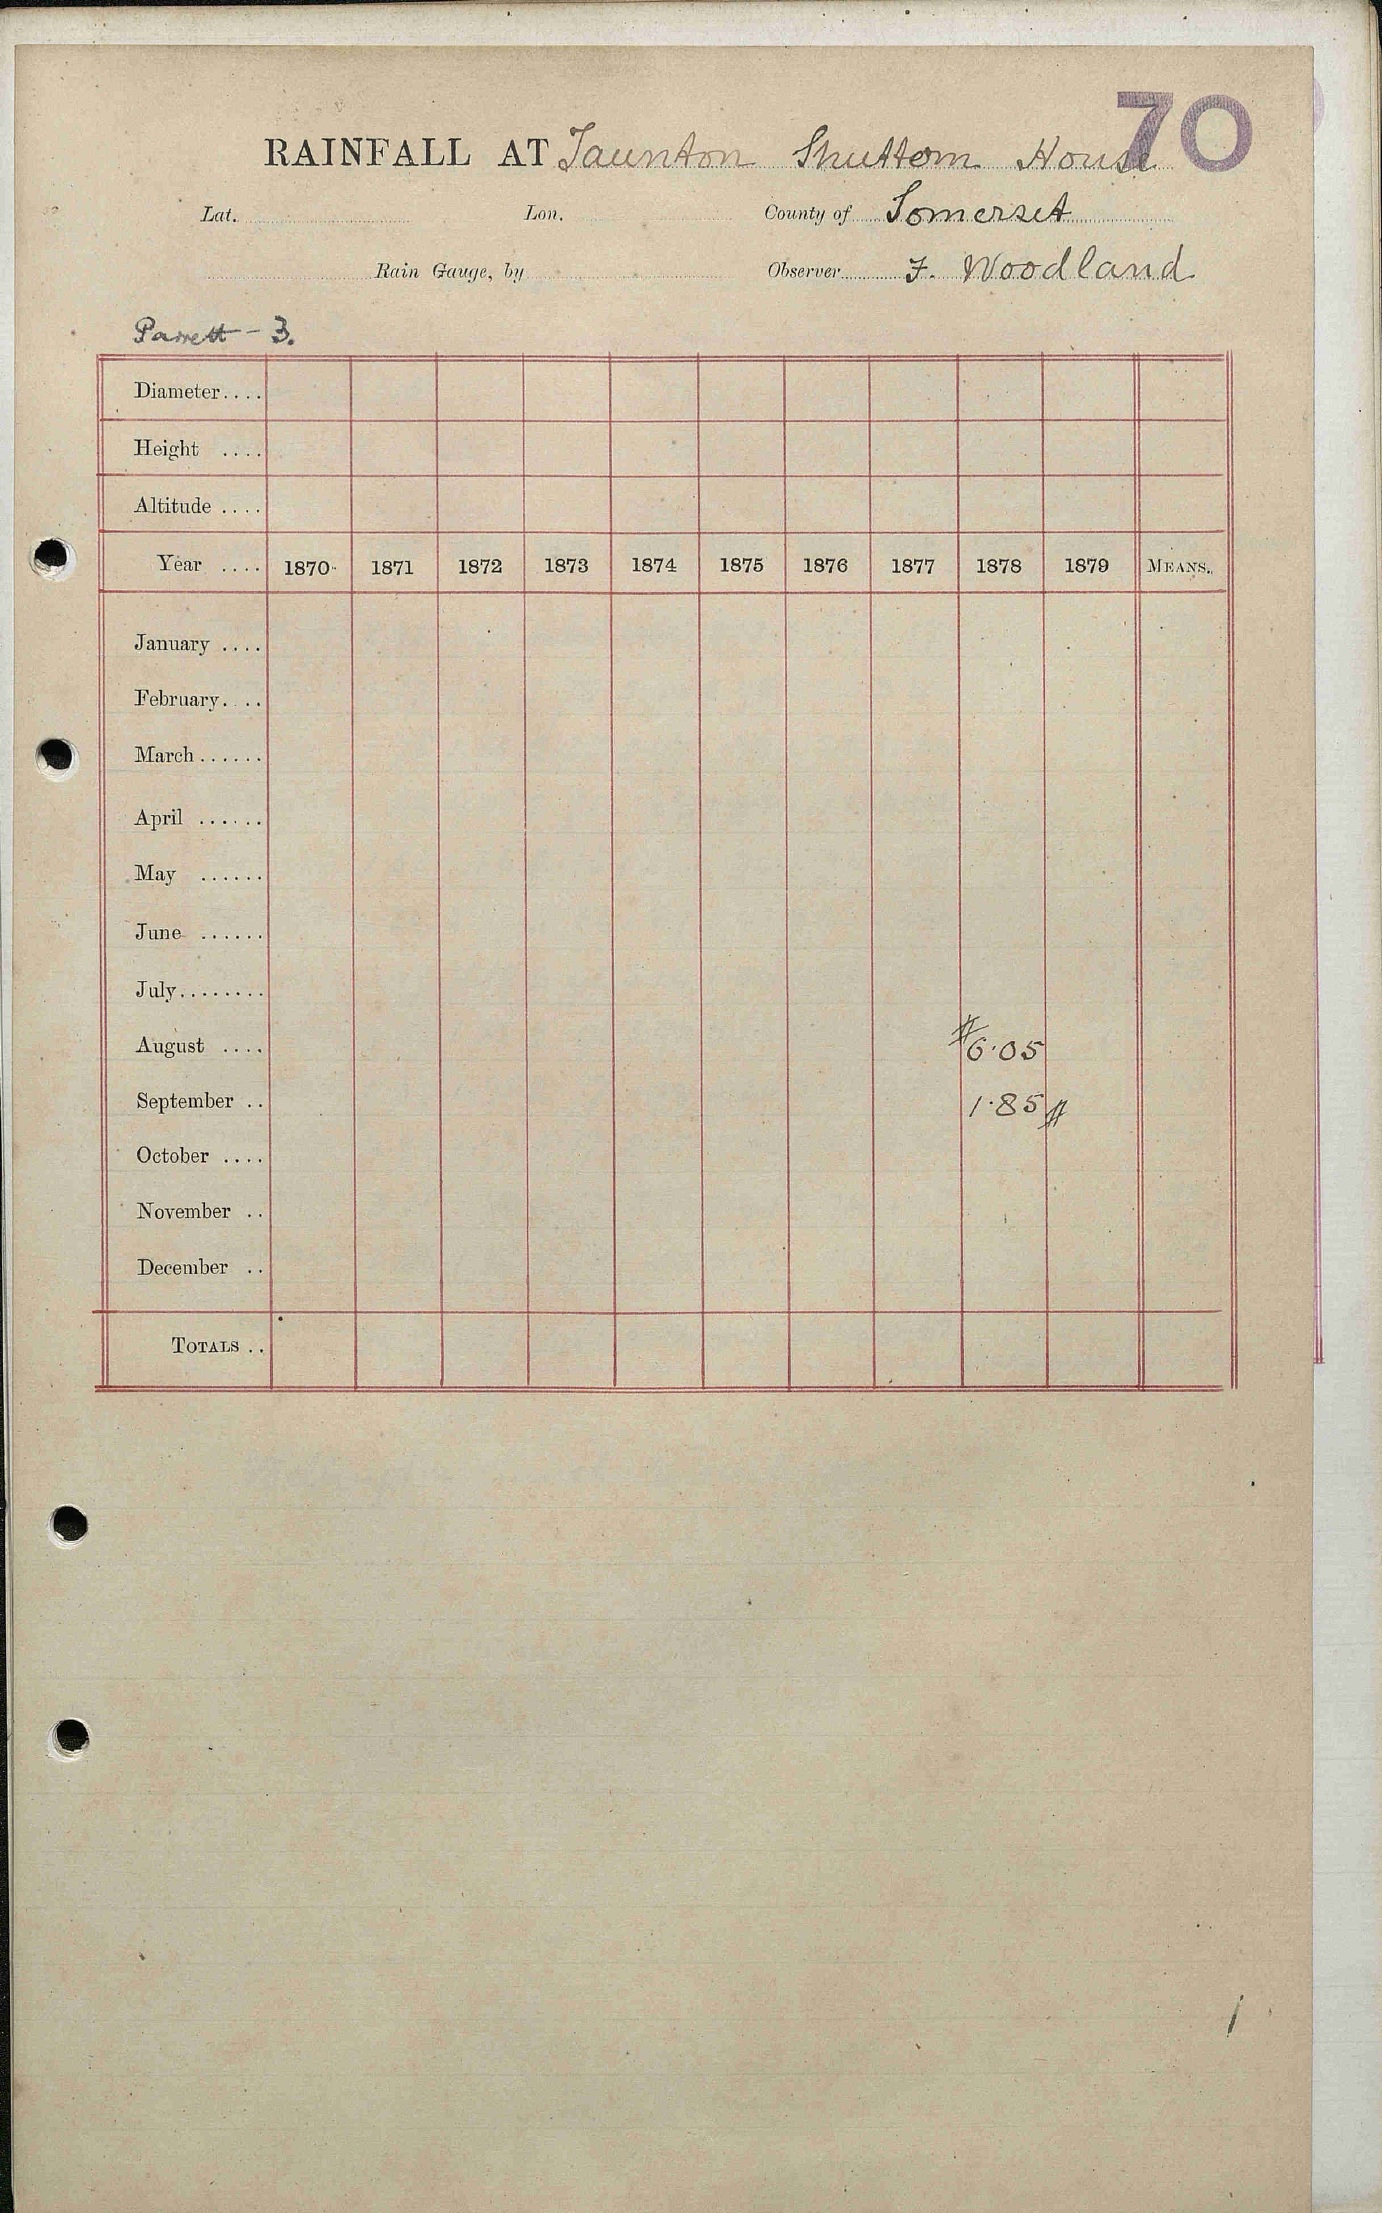 70
RAINFALL AT Taunton Shuttom House
Lat. Lon. County of Somerset
Rain Gauge, by Observer F. Woodland
Parrett - 3.
Diameter....
Height ....
Altitude ....
Year .... 1870 1871 1872 1873 1874 1875 1876 1877 1878 1879 MEANS.
January ....
February....
March......
April ......
May ......
June ......
July........
August .... #6.05
September .. 1.85#
October ....
November ..
December ..
TOTALS ..
1